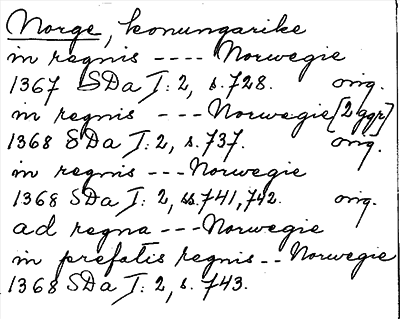 Norge, konungarike
in regnis ---- Norwegie
1367 SDa I: 2, s. 728. orig.
in regnis --- Norwegie [2 ggr]
1368 SDa I: 2, s. 737. orig.
in regnis --- Norwegie
1368 SDa I: 2, ss. 741, 742. orig.
ad regna --- Norwegie
in prefatis regnis -- Norwegie
1368 SDa I: 2, s. 743.